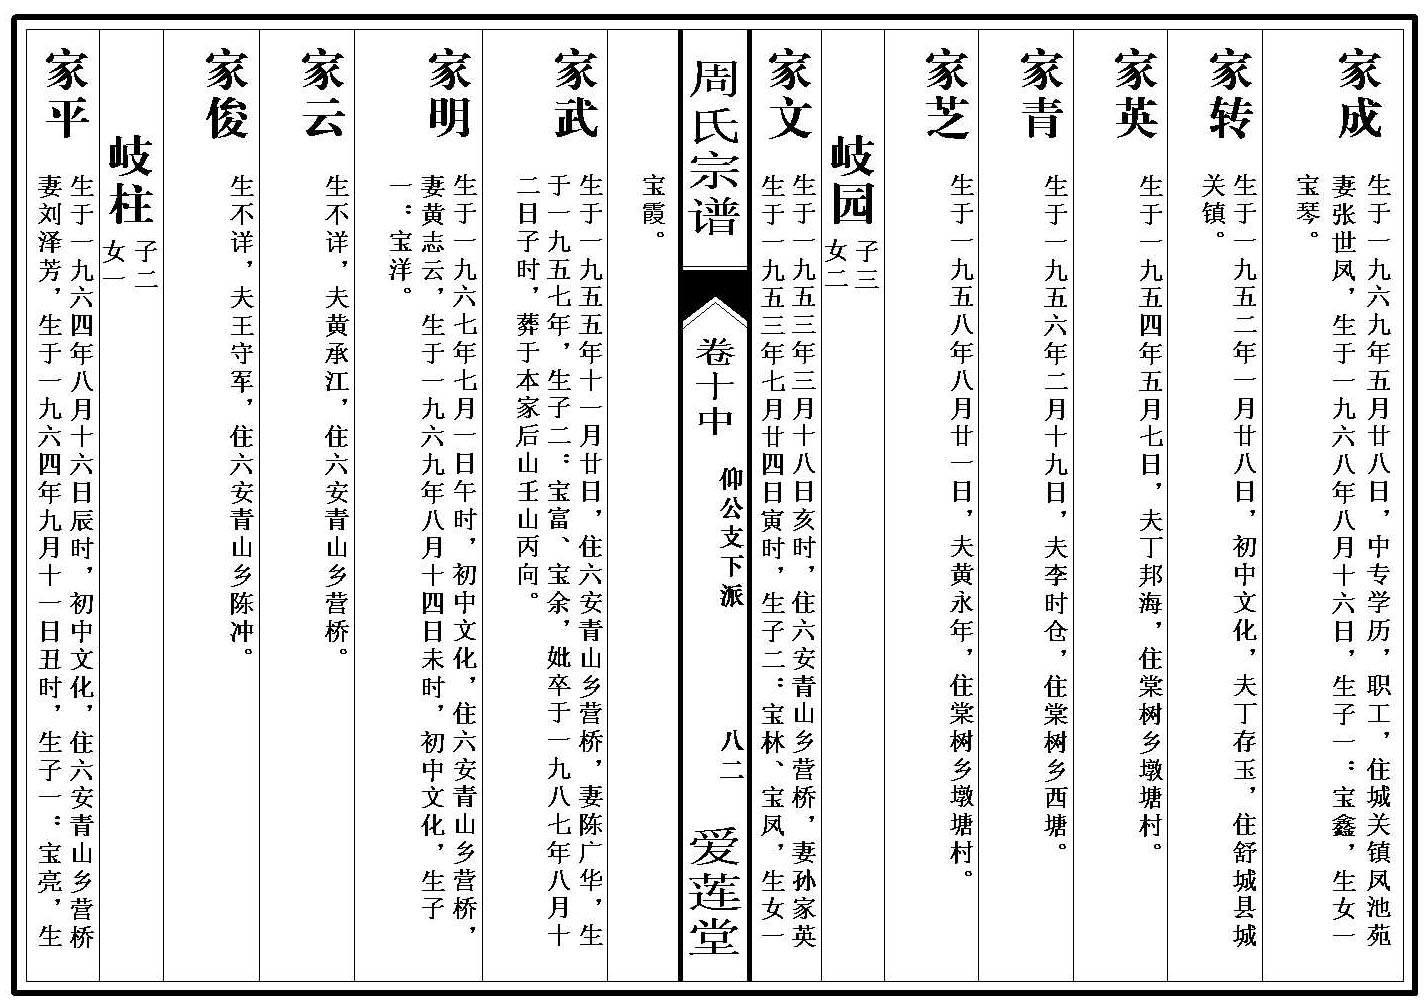 家成
生于一九六九年五月廿八日，中专学历，职工，住城关镇凤池苑
妻张世凤，生于一九六八年八月十六日，生子一：宝鑫，生女一
宝琴。
家转
生于一九五二年一月廿八日，初中文化，夫丁存玉，住舒城县城
关镇。
家英
生于一九五四年五月七日，夫丁邦海，住棠树乡墩塘村。
家青
生于一九五六年二月十九日，夫李时仓，住棠树乡西塘。
家芝
生于一九五八年八月廿一日，夫黄永年，住棠树乡墩塘村。
岐园
子三
女二
家文
生于一九五三年三月十八日亥时，住六安青山乡营桥，妻孙家英
生于一九五三年七月廿四日寅时，生子二：宝林、宝凤，生女一
周氏宗谱
卷十中
仰公支下派
八二
爱莲堂
宝霞。
家武
生于一九五五年十一月廿日，住六安青山乡营桥，妻陈广华，生
于一九五七年，生子二：宝富、宝余，妣卒于一九八七年八月十
二日子时，葬于本家后山壬山丙向。
家明
生于一九六七年七月一日午时，初中文化，住六安青山乡营桥，
妻黄志云，生于一九六九年八月十四日未时，初中文化，生子
一：宝洋。
家云
生不详，夫黄承江，住六安青山乡营桥。
家俊
生不详，夫王守军，住六安青山乡陈冲。
岐柱
子二
女一
家平
生于一九六四年八月十六日辰时，初中文化，住六安青山乡营桥
妻刘泽芳，生于一九六四年九月十一日丑时，生子一：宝亮，生